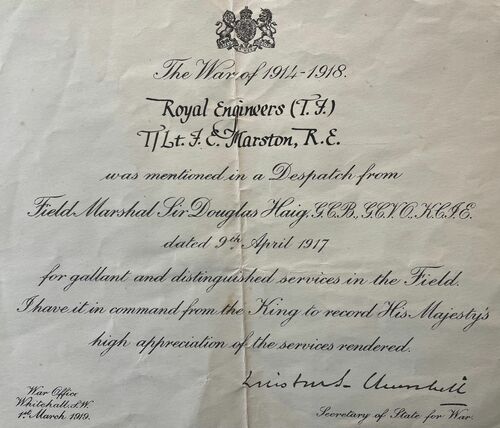 The War of 1914-1918.
Royal Engineers (T.F.)
T/Lt. F. E. Marston, R.E.
was mentioned in a Despatch from
Field Marshal Sir Douglas Haig, G.C.B., G.C.V.O., K.C.I.E.
dated 9th April 1917
for gallant and distinguished services in the Field.
I have it in command from the King to record His Majesty's
high appreciation of the services rendered.
Winston S. Churchill
War Office
Whitehall, S.W.
1st March 1919.
Secretary of State for War.